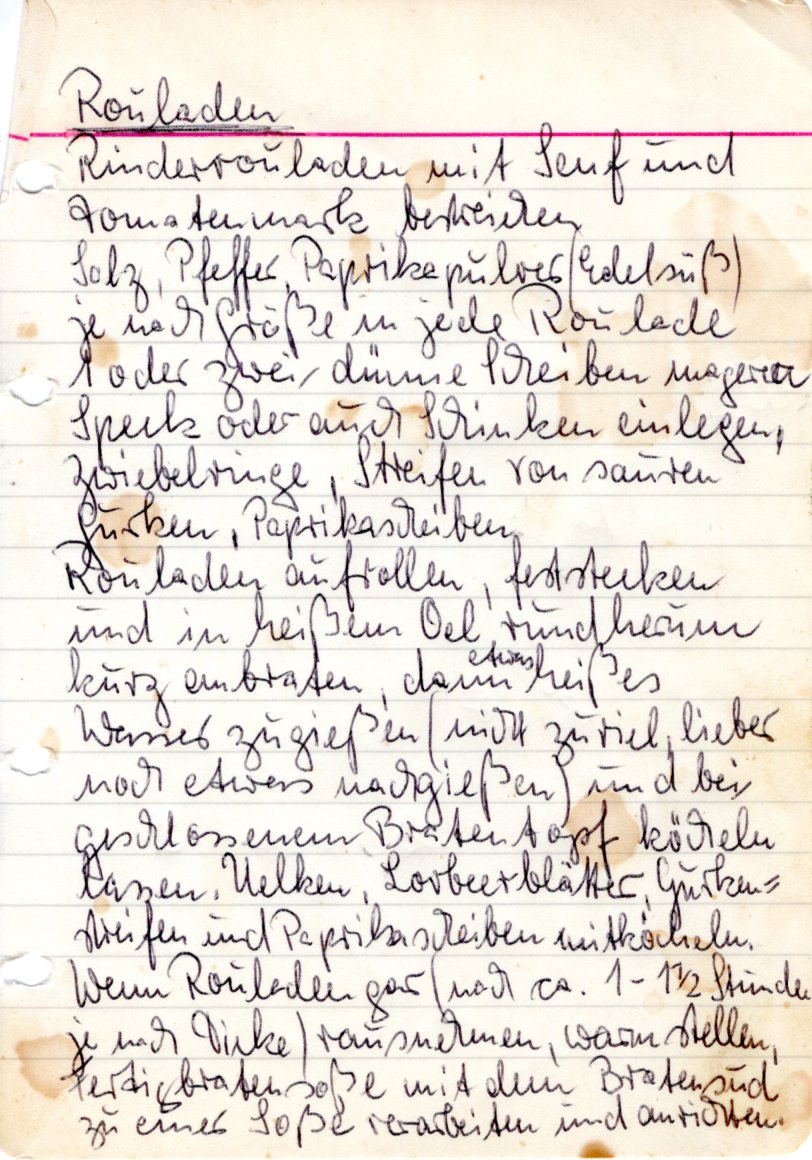 Rouladen
Rinderrouladen mit Senf und
Tomatenmark bestreichen
Salz, Pfeffer, Paprikapulver (Edelsüß)
je nach Größe in jede Roulade
1 oder zwei dünne Scheiben mageren
Speck oder auch Schinken einlegen,
Zwiebelringe, Streifen von sauren
Gurken, Paprikascheiben
Rouladen aufrollen, feststecken
und in heißem Oel rundherum
kurz anbraten, dann etwas heißes
Wasser zugießen (nicht zuviel, lieber
noch etwas nachgießen) und bei
geschlossenem Bratentopf köcheln
lassen. Nelken, Lorbeerblätter, Gurken=
streifen und Paprikascheiben mitköcheln.
Wenn Rouladen gar (nach ca. 1 - 1 1/2 Stunden
je nach Dicke) rausnehmen, warm stellen,
Fertigbratensoße mit dem Bratensud
zu einer Soße verarbeiten und anrichten.